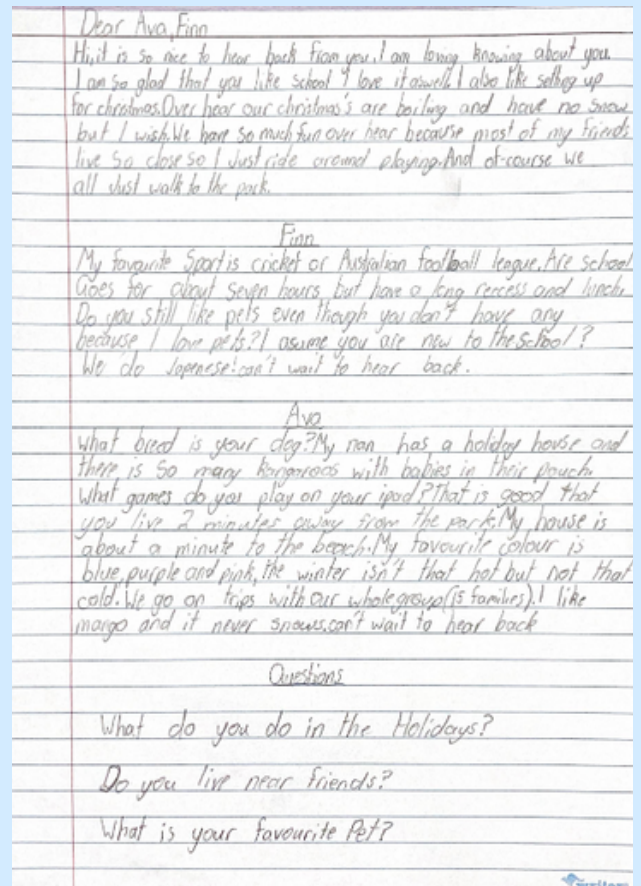 Dear Ava, Finn
Hi, it is so nice to hear back from you. I am loving knowing about you.
I am so glad that you like school I love it aswell. I also like setting up
for christmas. Over hear our christmas's are boiling and have no snow
but I wish. We have so much fun over hear because most of my friends
live so close so I Just ride around playing. And of-course we
all Just walk to the park.
Finn
My favourite Sport is cricket or Australian football league. Are school
Goes for about seven hours but have a long reccess and lunch.
Do you still like pets even though you don't have any
because I love pets? I asume you are new to the school?
We do Japenese! can't wait to hear back.
Ava
What breed is your dog? My nan has a holiday house and
there is so many kangaroos with babies in their pouch.
What games do you play on your ipad? That is good that
you live 2 minutes away from the park. My house is
about a minute to the beach. My favourite colour is
blue, purple and pink, the winter isn't that hot but not that
cold. We go on trips with our whole group (15 families). I like
mango and it never snows. can't wait to hear back
Questions
What do you do in the Holidays?
Do you live near friends?
What is your favourite Pet?